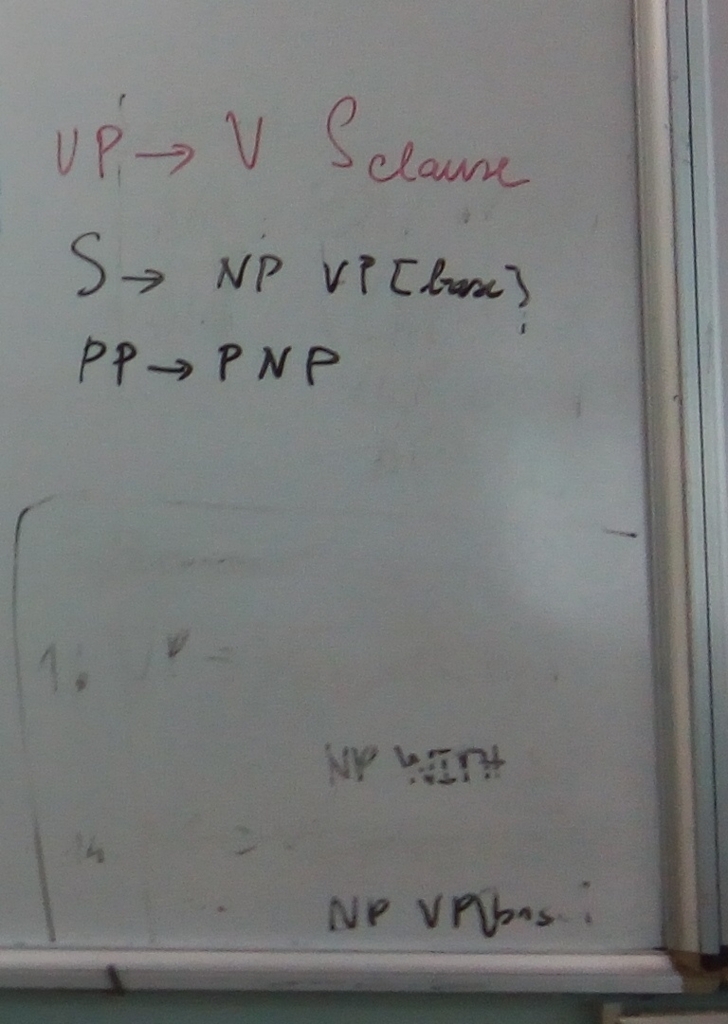 VP → V S clause
S → NP VP [base]
PP → P NP
1.
NP WITH
NP VP[bas